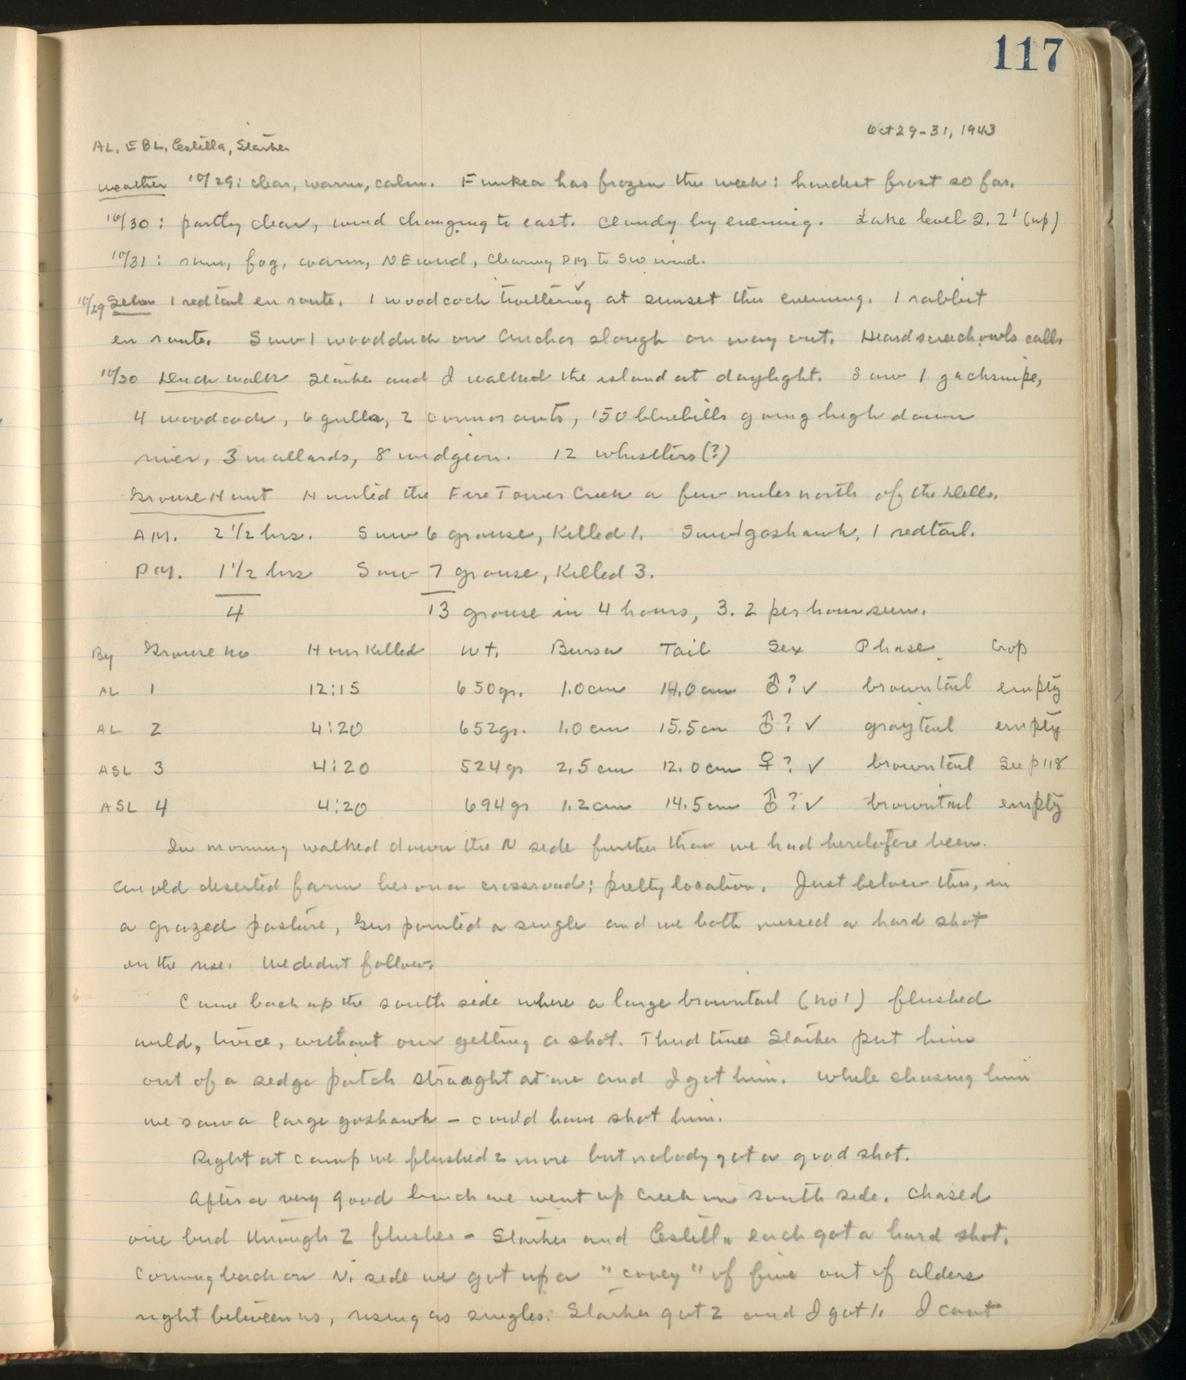 117
Oct 29-31, 1943
AL, EBL, Estella, Starker
Weather 10/29: clear, warm, calm. Funkea has frozen this week: hardest frost so far.
10/30: partly clear, wind changing to east. Cloudy by evening. Lake level 2.2' (up)
10/31: rain, fog, warm, NE wind, clearing PM to SW wind.
10/29 Seen 1 redtail en route. 1 woodcock twittering at sunset this evening. 1 rabbit
en route. Saw 1 woodduck on Anchor slough on way out. Heard screech owls call.
10/30 Duck walk Starker and I walked the island at daylight. Saw 1 jacksnipe,
4 woodcock, 6 gulls, 2 cormorants, 150 bluebills going high down
river, 3 mallards, 8 widgeon. 12 whistlers (?)
Grouse Hunt Hunted the Fire Tower Creek a few miles north of the Dells.
A.M. 2 1/2 hrs. Saw 6 grouse, Killed 1. Saw 1 goshawk, 1 redtail.
P.M. 1 1/2 hrs Saw 7 grouse, Killed 3.
4 13 grouse in 4 hours, 3.2 per hour seen.
By Grouse No Hour Killed Wt. Bursa Tail Sex Phase Crop
AL 1 12:15 650gr. 1.0cm 14.0cm ♂? ✓ browntail empty
AL 2 4:20 652gr. 1.0cm 15.5cm ♂? ✓ graytail empty
ASL 3 4:20 524gr 2.5cm 12.0cm ♀? ✓ browntail See p 118
ASL 4 4:20 694gr 1.2cm 14.5cm ♂? ✓ browntail empty
In morning walked down the N side further than we had heretofore been.
An old deserted farm lies on a crossroad; pretty location. Just below this, in
a grazed pasture, Gus pointed a single and we both missed a hard shot
on the rise. We didnt follow.
Came back up the south side where a large browntail (no 1) flushed
wild, twice, without our getting a shot. Third time Starker put him
out of a sedge patch straight at me and I got him. While chasing him
we saw a large goshawk - could have shot him.
Right at camp we flushed 2 more but nobody got a good shot.
After a very good lunch we went up creek on south side. Chased
one bird through 2 flushes - Starker and Estella each got a hard shot.
Coming back on N. side we got up a "covey" of five out of alders
right between us, rising as singles. Starker got 2 and I got 1. I cant